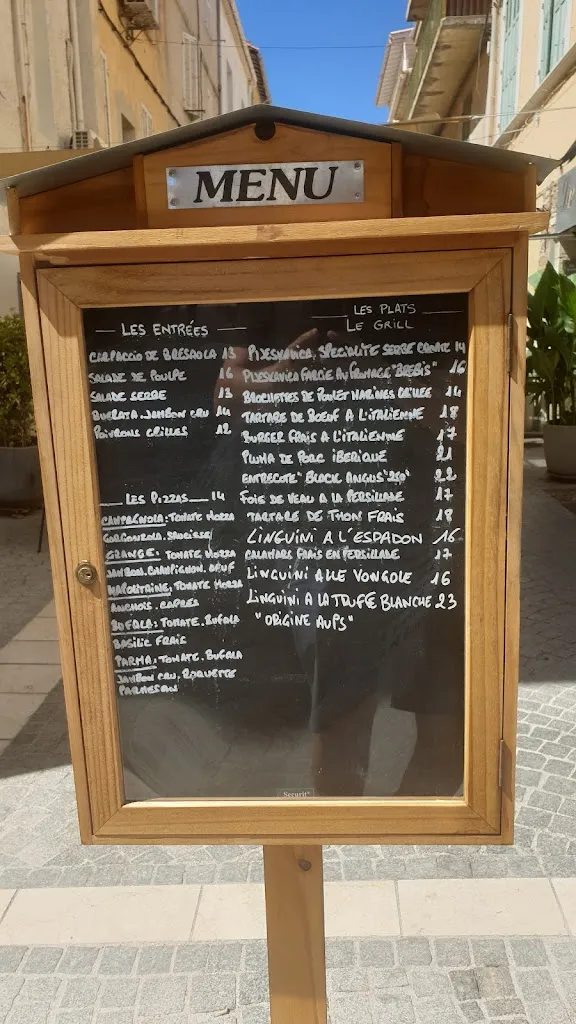 MENU
LES ENTRÉES
CARPACCIO DE BRESAOLA 13
SALADE DE POULPE 16
SALADE SERBE 13
BURRATA JAMBON CRU 14
POIVRONS GRILLES 12
LES PIZZAS 14
CAMPAGNOLA: TOMATE MOZZA
GORGONZOLA. SAUCISSE
GRANGE: TOMATE MOZZA
JAMBON. CHAMPIGNON. OEUF
NAPOLITAINE, TOMATE MOZZA
ANCHOIS. CAPRES
BUFALA: TOMATE. BUFALA
BASILIC FRAIS
PARMA: TOMATE. BUFALA
JAMBON CRU. ROQUETTE
PARMESAN
LES PLATS
LE GRILL
PLJESKAVICA, SPECIALITE SERBE CROATE 14
PLJESKAVICA FARCIE AU FROMAGE "BREBIS" 16
BROCHETTES DE POULET MARINES GRILLEE 14
TARTARE DE BŒUF A L'ITALIENNE 18
BURGER FRAIS A L'ITALIENNE 17
PLUMA DE PORC IBERIQUE 21
ENTRECOTE "BLACK ANGUS" 22
FOIE DE VEAU A LA PERSILLADE 17
TARTARE DE THON FRAIS 18
LINGUINI A L'ESPADON 16
CALAMARS FRAIS EN PERSILLADE 17
LINGUINI ALLE VONGOLE 16
LINGUINI A LA TRUFE BLANCHE 23
"ORIGINE AUPS"
Securit